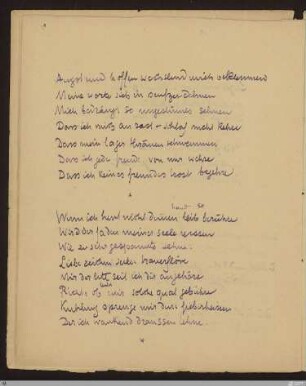 Angst und hoffen wechselnd mich beklemmen
Meine worte sich in seufzer dehnen
Mich bedrängt so ungestümes sehnen
Dass ich mich an rast + schlaf nicht kehre
Dass mein lager thränen schwemmen
Dass ich jede freude von mir wehre
Dass ich keines freundes trost begehre
*
Wenn ich heut nicht deinen leib berühre
Wird der faden meiner seele reissen
Wie zu sehr gespannte sehne.
Liebe zeichen seien trauerflöre
Mir der leidet seit ich dir angehöre
Richte ob mir solche qual gebühre
Kühlung sprenge mir dem fieberheissen
Der ich wankend draussen lehne
*